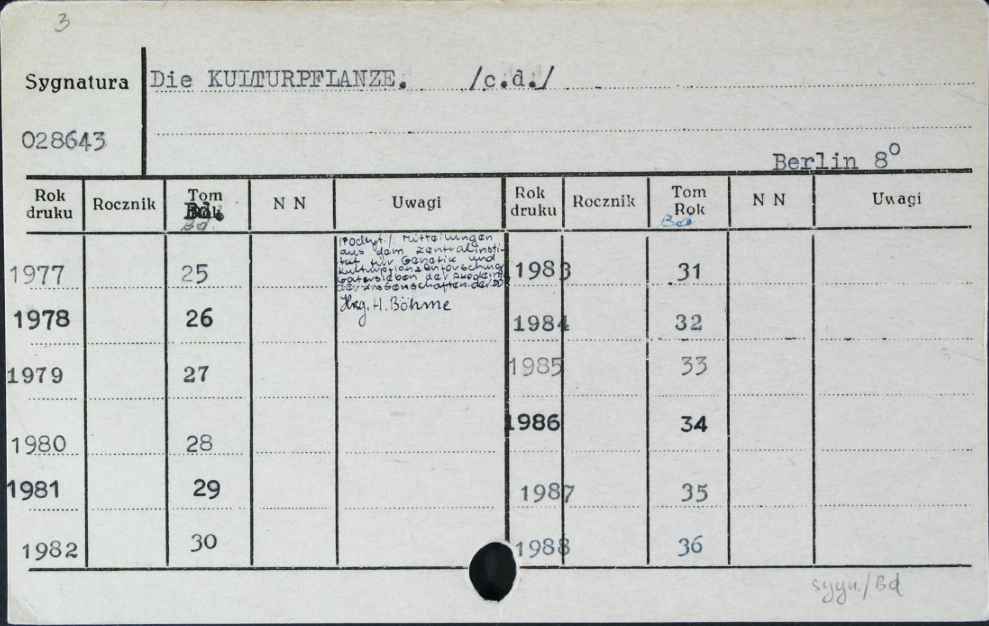 3
Sygnatura Die KULTURPFLANZE. /c.d./
028643
Berlin 8°
Rok druku Rocznik Tom Rok Bd. N N Uwagi Rok druku Rocznik Tom Rok Bd. N N Uwagi
/Podtyt./ Mitteilungen
aus dem Zentralinsti-
tut für Genetik und
Kulturpflanzenforschung
Gatersleben der Akademie
der Wissenschaften der DDR
Hrg. H. Böhme
1977 25 1983 31
1978 26 1984 32
1979 27 1985 33
1980 28 1986 34
1981 29 1987 35
1982 30 1988 36
sygn./Bd